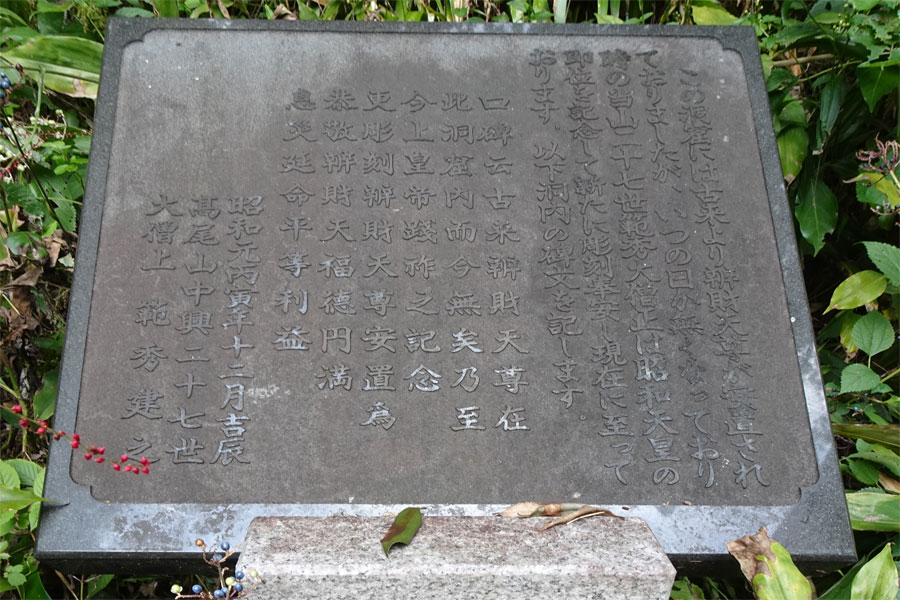 この洞窟には古来より辨財天尊が安置され
ておりましたが、いつの日か無くなっており
時の当山二十七世範秀大僧正は昭和天皇の
即位を記念し新たに彫刻奉安し現在に至って
おります。以下洞内の碑文を記します。
口碑云古来辨財天尊在
此洞窟内而今無矣乃至
今上皇帝踐祚之記念
更彫刻辨財天尊安置為
恭敬辨財天福徳円満
息災延命平等利益
昭和元丙寅年十二月吉辰
髙尾山中興二十七世
大僧正範秀建之